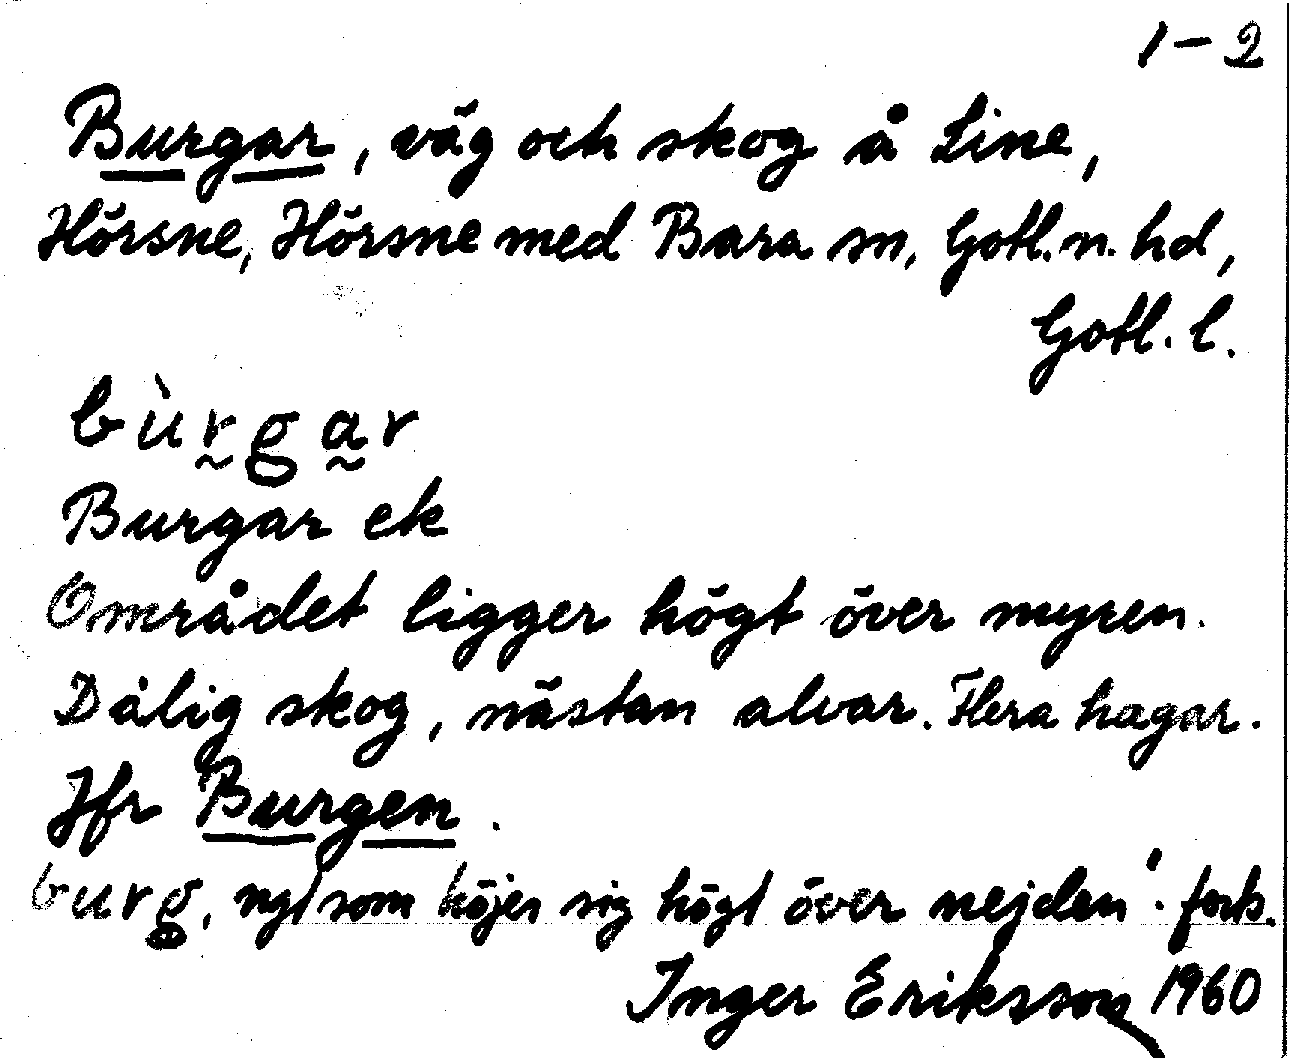 1-2
Burgar, väg och skog å Line,
Hörsne, Hörsne med Bara sn, Gotl. n. hd,
Gotl. l.
bùrgar
Burgar ek
Området ligger högt över myren.
Dålig skog, nästan alvar. Flera hagar.
Jfr Burgen.
burg, ngt som höjer sig högt över nejden'.
Inger Eriksson 1960